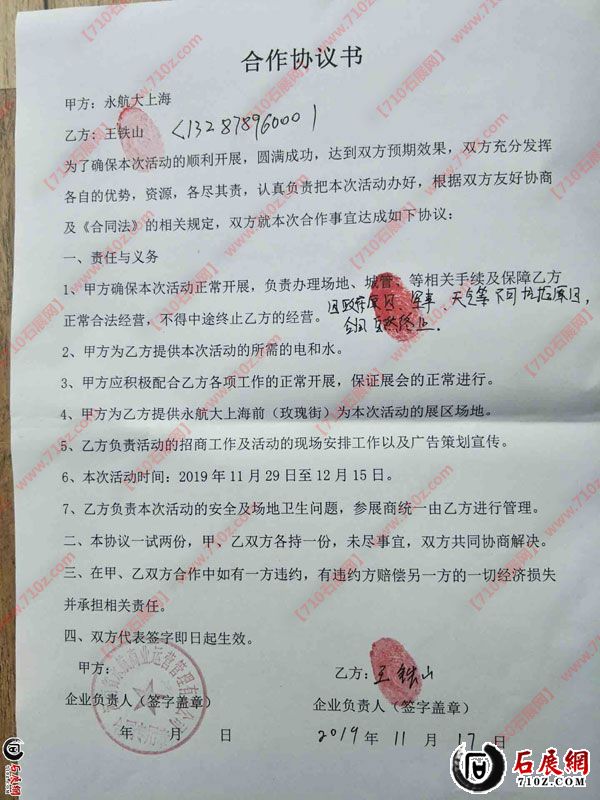 合作协议书
甲方：永航大上海
乙方：王铁山 （13287896000）
为了确保本次活动的顺利开展，圆满成功，达到双方预期效果，双方充分发挥
各自的优势，资源，各尽其责，认真负责把本次活动办好，根据双方友好协商
及《合同法》的相关规定，双方就本次合作事宜达成如下协议：
一、责任与义务
1、甲方确保本次活动正常开展，负责办理场地、城管、等相关手续及保障乙方
因政府原因 天气等不可抗拒原因，
正常合法经营，不得中途终止乙方的经营。
合同自然终止.
2、甲方为乙方提供本次活动的所需的电和水。
3、甲方应积极配合乙方各项工作的正常开展，保证展会的正常进行。
4、甲方为乙方提供永航大上海前（玫瑰街）为本次活动的展区场地。
5、乙方负责活动的招商工作及活动的现场安排工作以及广告策划宣传。
6、本次活动时间：2019年11月29日至12月15日。
7、乙方负责本次活动的安全及场地卫生问题，参展商统一由乙方进行管理。
二、本协议一试两份，甲、乙双方各持一份，未尽事宜，双方共同协商解决。
三、在甲、乙双方合作中如有一方违约，有违约方赔偿另一方的一切经济损失
并承担相关责任。
四、双方代表签字即日起生效。
甲方： 乙方：王铁山
企业负责人（签字盖章） 企业负责人（签字盖章）
年 月 日 2019年11月17日
商业运营管理有限公司
【710石展网】
www.710z.com
石展網
710Z.COM